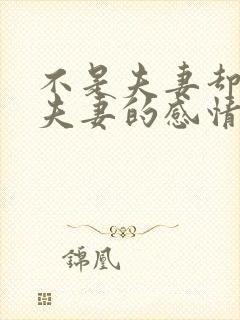 不是夫妻却
夫妻的感情
锦凰